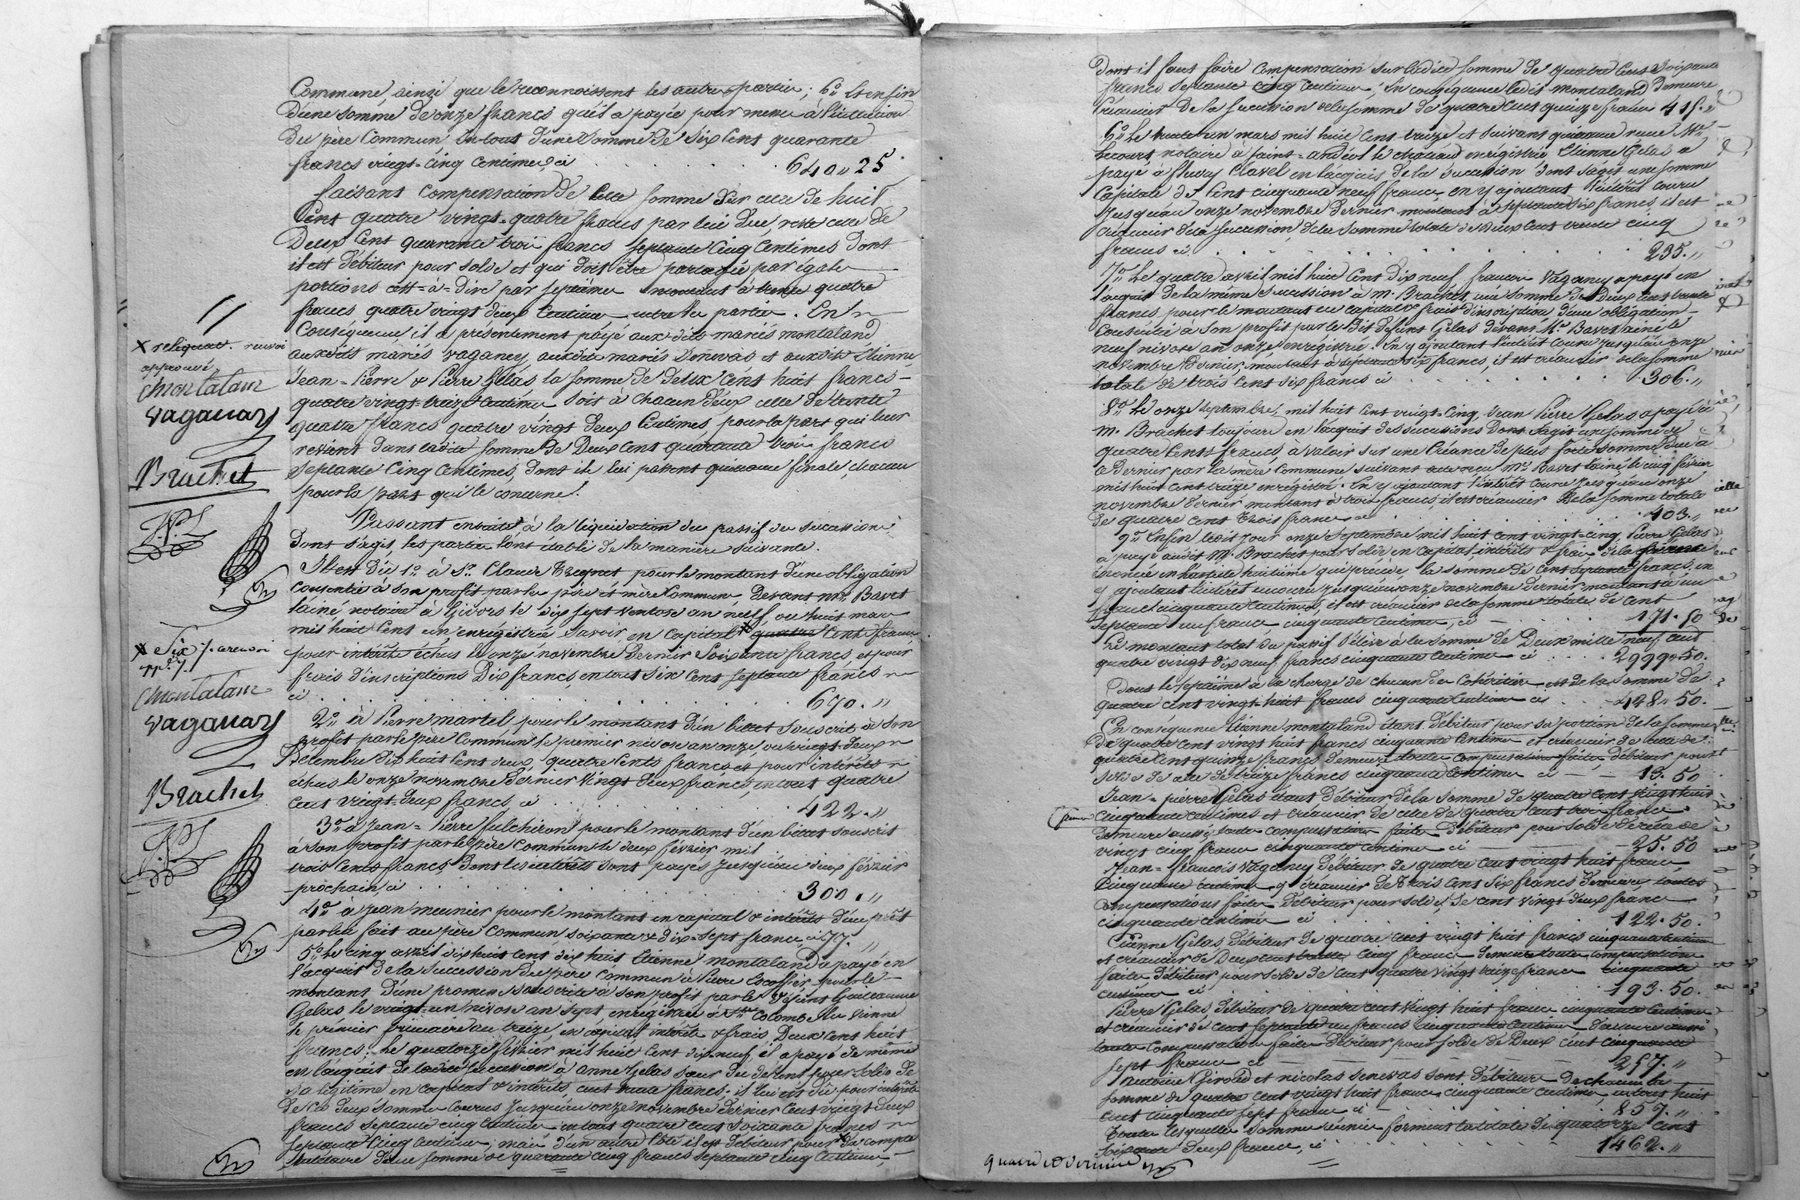 Commune, ainsi que le reconnoissent les autres parties; 6° Et enfin
d'une somme de onze francs qu'il a payée pour mener à l'exécution
du père Commun. En tout d'une somme de Six Cent quarante
francs vingt-cinq Centimes, ci . . . . 640 „ 25
faisant compensation de cette somme sur celle de huit
Cent quatre vingt-quatre francs par lui due, reste celle de
Deux Cent quarante trois francs Septante Cinq Centimes dont
il est débiteur pour solde et qui doit être partagée par égale
portions c'est-à-dire par septième montant à trente quatre
francs quatre vingt deux Centimes . En
Conséquence il a présentement payé aux dits mariés montaland
auxdits mariés vaganey, auxdits mariés Senevas et auxdits Etienne
Jean-Pierre & Pierre Gelas la somme de Deux Cent huit francs
quatre vingt-treize Centimes soit à chacun d'eux celle de trente
quatre francs quatre vingt deux Centimes, pour la part qui leur
revient dans ladite somme de Deux Cent quarante trois francs
Septante Cinq Centimes, dont ils lui passent quittance finale, chacun
pour la part qui le concerne.
X reliquat. renvoi
approuvé
Montalan
vaganay
Brachet
Passant ensuite à la liquidation du passif des successions
dont s'agit, les parties l'ont établi de la manière suivante.
Il est dû 1° à Sr. Claude pour le montant d'une obligation
Consentie à son profit par les père et mère Commun devant Me Bavet
lainé notaire à Givors le dix sept ventose an neuf, ou huit mars
mil huit Cent un enregistrée Savoir, en Capital X quatre Cent francs
pour intérêts échus le onze novembre dernier Soixante francs, et pour
frais d'inscriptions Dix francs, en tout Six Cent Septante francs
ci . . . . 670. „
X Six /. renvoi
app. /.
Montalan
vaganay
Brachet
2° à Pierre martel pour le montant d'un billet souscrit à son
profit par le père Commun le premier nivose an onze ou vingt-deux
Décembre Dix huit Cent deux, quatre Cents francs et pour intérêts
échus le onze novembre dernier Vingt deux francs, en tout quatre
Cent vingt-deux francs, ci . . . . 422. „
3° à Jean-Pierre fulchiron pour le montant d'un billet souscrit
à son profit par le père Commun le deux février mil
trois Cents francs dont les intérêts sont payés jusqu'au deux février
prochain ci . . . . 300. „
4° à Jean meunier pour le montant en capital & intérêts d'un prêt
par lui fait au père Commun soixante & dix-sept francs ci 77. „
5° Le cinq avril dix huit cent dix huit Etienne montaland a payé en
l'acquit de la succession du père commun à Pierre pour le
montant d'une promesse souscrite à son profit par le défunt Guillaume
Gelas le vingt-un nivose an sept, enregistrée à Ste Colombe
le premier frimaire an treize, en capital, intérêts & frais, Deux cent huit
francs; Le quatorze février mil huit Cent dix neuf, il a payé de même
en l'acquit de ladite succession à anne Gelas sœur du défunt pour solde de
sa légitime en capital & intérêts cent francs; il lui est dû pour intérêts
de ces deux sommes courus jusqu'au onze novembre dernier Cent vingt deux
francs Septante cinq Centimes en tout quatre cent soixante francs
Septante Cinq Centimes, mais d'un autre côté il est débiteur pour
d'une somme de quarante cinq francs Septante cinq Centimes,
dont il faut faire compensation sur ladite somme de quatre Cent Soixante
francs Septante cinq Centimes, en conséquence ledit montaland demeure
Créancier de la succession de la somme de quatre cent quinze francs 415. „
6° Le trente un mars mil huit Cent treize et suivant quittance reçue Me
Lecourt, notaire à Saint-andéol le château enregistrée Etienne Gelas a
payé à fleury Clavel en l'acquis de la succession dont s'agit une somme
Capitale de Cent cinquante neuf francs en y ajoutant l'intérêt couru
jusqu'au onze novembre dernier montant à septante six francs, il est
créancier de la succession, de la somme totale de Deux cent trente cinq
francs ci . . . . 235. „
7° Le quatre avril mil huit Cent dix neuf, françois Vaganey a payé en
l'acquit de la même succession à Mr. Brachet, une somme de Deux cent trente
francs pour le montant en capital & frais d'inscription d'une obligation
Consentie à son profit par le dit défunt Gelas devant Me Bavet lainé le
neuf nivose an onze enregistrée. En y ajoutant l'intérêt couru jusqu'au onze
novembre dernier, montant à septante six francs, il est créancier de la somme
totale de trois Cent six francs ci . . . . 306. „
8° Le onze Septembre, mil huit Cent vingt-cinq, Jean Pierre Gelas a payé à
Mr. Brachet toujours en l'acquit des successions dont s'agit une somme de
quatre Cents francs, à valoir sur une Créance de plus forte somme Due à
ce dernier par la mère Commune suivant acte reçu Me Bavet lainé, le cinq février
mil huit Cent treize enregistré. En y ajoutant l'intérêt couru jusqu'au onze
novembre dernier montant à trois francs, il est créancier de la somme totale
de quatre cent trois francs ci . . . . 403. „
9° Enfin ledit jour onze Septembre mil huit Cent vingt-cinq, Pierre Gelas
a payé audit Mr. Brachet pour solde en capital intérêts & frais de la créance
énoncée en l'article huitième qui précède, la somme de cent septante francs, en
y ajoutant l'intérêt encouru jusqu'au onze novembre dernier montant à un
franc cinquante Centimes, il est créancier de la somme totale de Cent
septante un francs cinquante Centimes, ci 171. 50
Le montant total du passif s'élève à la somme de Deux mille neuf cent
quatre vingt dix neuf francs cinquante Centimes ci . . . 2999 „ 50.
Dont le septième à la charge de chacun des Cohéritiers est de la somme de
quatre cent vingt-huit francs cinquante Centimes ci . . . 428 „ 50.
En conséquence Etienne montaland étant débiteur pour sa portion de la somme
de quatre Cent vingt huit francs cinquante Centimes et créancier de celle de
quatre Cent quinze francs demeure toute compensation faite débiteur pour
solde de celle de treize francs cinquante Centimes ci — — 13. 50
Jean-pierre Gelas étant débiteur de la somme de quatre Cent vingt huit
cinquante centimes et créancier de celle de quatre Cent trois francs
demeure aussi toute compensation faite débiteur pour solde de celle de
vingt cinq francs cinquante Centimes ci — — 25. 50
Jean-françois Vaganey débiteur de quatre cent vingt huit francs
cinquante Centimes & créancier de trois Cent Six francs demeure, toutes
compensations faites débiteur pour solde, de cent vingt deux francs
cinquante Centimes ci . . . . 122. 50.
Etienne Gelas débiteur de quatre cent vingt huit francs cinquante Centimes
et créancier de Deux cent trente cinq francs demeure toute compensation
faite débiteur pour solde de cent quatre vingt treize francs cinquante
centimes ci . . . . 193. 50.
Pierre Gelas, débiteur de quatre cent vingt huit francs cinquante Centimes
et créancier de cent septante un francs cinquante Centimes demeure aussi
toute compensation faite débiteur pour solde de Deux cent cinquante
sept francs ci . . . . 257. „
Antoine Girord et nicolas senevas sont débiteurs de chacun la
somme de quatre cent vingt huit francs cinquante centimes en tout huit
cent cinquante sept francs ci . . . . 857. „
Toutes lesquelles sommes réunies forment la totale de quatorze cent
soixante deux francs, ci . . . . 1462. „